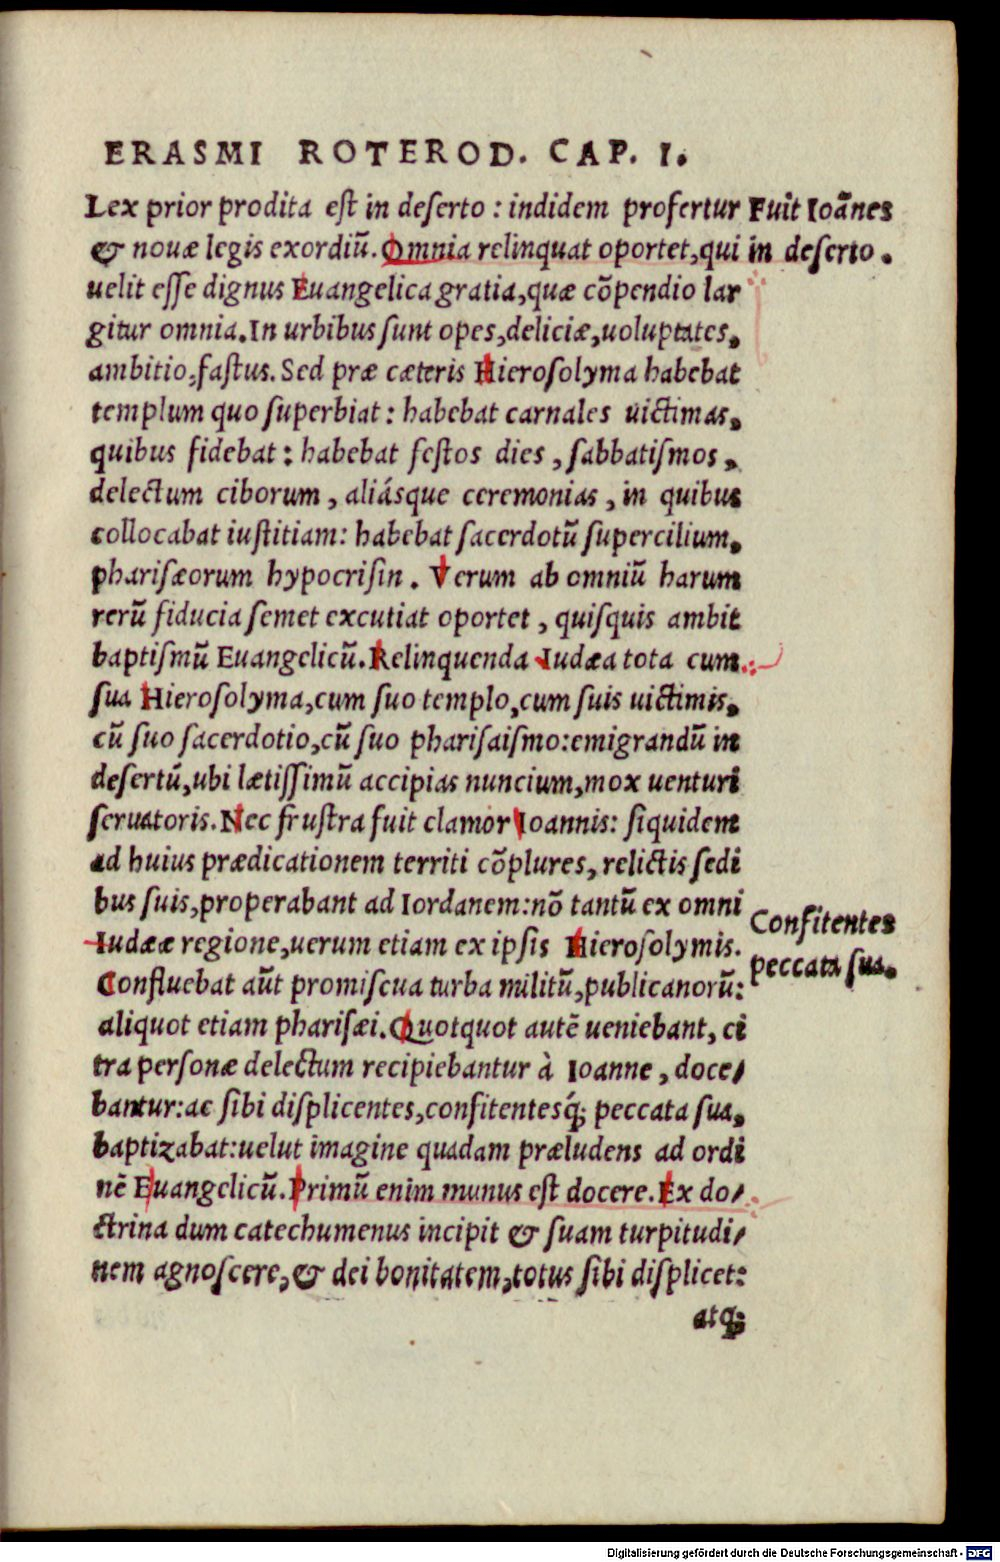 ERASMI ROTEROD. CAP. I.
Lex prior prodita est in deserto : indidem profertur
Fuit Ioānes
& nouæ legis exordiū. Omnia relinquat oportet, qui
in deserto.
uelit esse dignus Euangelica gratia, quæ cōpendio lar
gitur omnia. In urbibus sunt opes, deliciæ, uoluptates,
ambitio, fastus. Sed præ cæteris Hierosolyma habebat
templum quo superbiat : habebat carnales uictimas,
quibus fidebat : habebat festos dies, sabbatismos,
delectum ciborum, aliásque ceremonias, in quibus
collocabat iustitiam: habebat sacerdotū supercilium,
pharisæorum hypocrisin. Verum ab omniū harum
rerū fiducia semet excutiat oportet, quisquis ambit
baptismū Euangelicū. Relinquenda Iudæa tota cum
sua Hierosolyma, cum suo templo, cum suis uictimis,
cū suo sacerdotio, cū suo pharisaismo: emigrandū in
desertū, ubi lætissimū accipias nuncium, mox uenturi
seruatoris. Nec frustra fuit clamor Ioannis: siquidem
ad huius prædicationem territi cōplures, relictis sedi
bus suis, properabant ad Iordanem: nō tantū ex omni
Iudææ regione, uerum etiam ex ipsis Hierosolymis.
Confitentes
peccata sua.
Confluebat aūt promiscua turba militū, publicanorū:
aliquot etiam pharisæi. Quotquot autē ueniebant, ci
tra personæ delectum recipiebantur à Ioanne, doce/
bantur: ac sibi displicentes, confitentesq; peccata sua,
baptizabat: uelut imagine quadam præludens ad ordi
nē Euangelicū. Primū enim munus est docere. Ex do/
ctrina dum catechumenus incipit & suam turpitudi/
nem agnoscere, & dei bonitatem, totus sibi displicet:
atq;
Digitalisierung gefördert durch die Deutsche Forschungsgemeinschaft - DFG